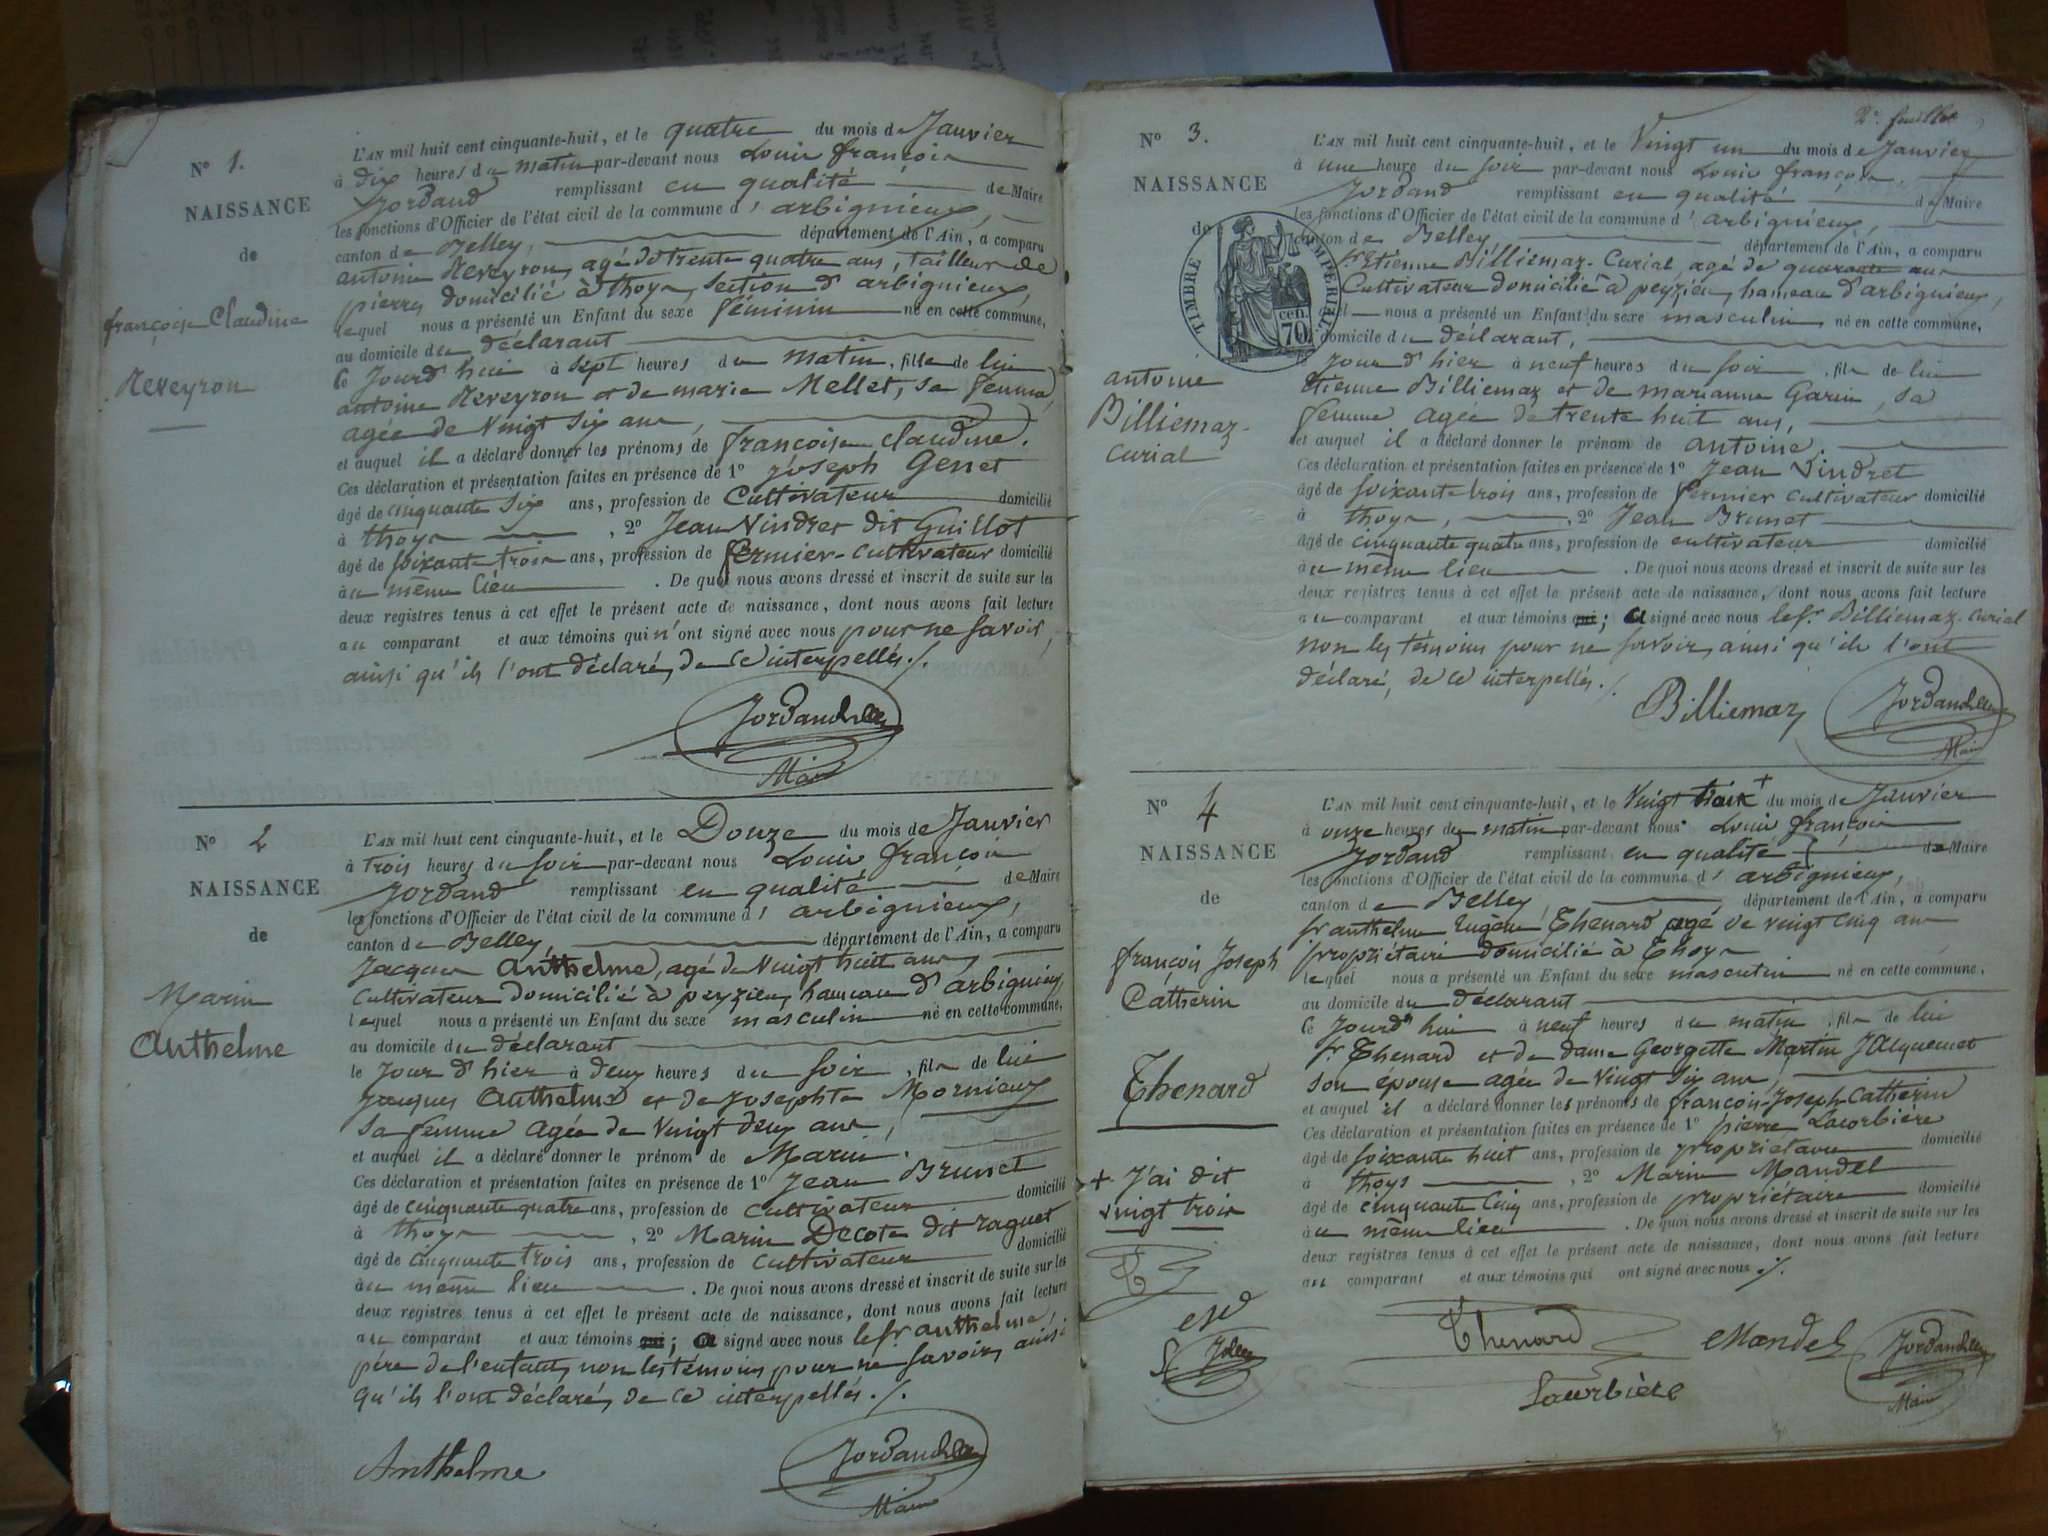 N° 1.
NAISSANCE
de
françoise Claudine
Neveyron
L'AN mil huit cent cinquante-huit, et le quatre du mois de Janvier
à dix heures du matin par-devant nous Louis françois
Jordand remplissant en qualité de Maire
les fonctions d'Officier de l'état civil de la commune d' arbignieux,
canton de Belley, département de l'Ain, a comparu
antoine Neveyron, agé de trente quatre ans, tailleur de
pierres, domicilié à thoys, section d'arbignieux,
lequel nous a présenté un Enfant du sexe féminin né en cette commune,
au domicile du déclarant
le Jourd'hui à sept heures du matin, fille de lui
antoine Neveyron et de marie Mellet, sa femme,
agée de Vingt six ans,
et auquel il a déclaré donner les prénoms de françoise claudine.
Ces déclaration et présentation faites en présence de 1° joseph Genet
âgé de cinquante six ans, profession de Cultivateur domicilié
à thoys, 2° Jean Vindret dit Guillot
âgé de soixante trois ans, profession de fermier-cultivateur domicilié
au même lieu. De quoi nous avons dressé et inscrit de suite sur les
deux registres tenus à cet effet le présent acte de naissance, dont nous avons fait lecture
au comparant et aux témoins qui n'ont signé avec nous pour ne savoir,
ainsi qu'ils l'ont déclaré, de ce interpellés./.
Maire
N° 2
NAISSANCE
de
Marin
Anthelme
L'AN mil huit cent cinquante-huit, et le Douze du mois de Janvier
à trois heures du soir par-devant nous Louis françois
Jordand remplissant en qualité de Maire
les fonctions d'Officier de l'état civil de la commune d' arbignieux,
canton de Belley, département de l'Ain, a comparu
Jacques Anthelme, agé de Vingt huit ans,
Cultivateur domicilié à peyzieu, hameau d'arbignieux,
lequel nous a présenté un Enfant du sexe masculin né en cette commune,
au domicile du déclarant
le jour d'hier à deux heures du soir, fils de lui
jacques Anthelme et de Josephte Mornieux
sa femme agée de Vingt deux ans,
et auquel il a déclaré donner le prénom de Marin.
Ces déclaration et présentation faites en présence de 1° Jean Brunet
âgé de cinquante quatre ans, profession de Cultivateur domicilié
à thoys, 2° Marin Decote dit raguet
âgé de cinquante trois ans, profession de Cultivateur domicilié
au même lieu. De quoi nous avons dressé et inscrit de suite sur les
deux registres tenus à cet effet le présent acte de naissance, dont nous avons fait lecture
au comparant et aux témoins qui; a signé avec nous le sr anthelme,
père de l'enfant, non les témoins pour ne savoir, ainsi
qu'ils l'ont déclaré, de ce interpellés./.
Anthelme
Maire
2e. feuillet
N° 3.
NAISSANCE
de
TIMBRE IMPERIAL
70 cen.
antoine
Billiemaz-
curial
L'AN mil huit cent cinquante-huit, et le Vingt un du mois de Janvier
à une heure du soir par-devant nous Louis françois,
Jordand remplissant en qualité de Maire
les fonctions d'Officier de l'état civil de la commune d' arbignieux,
canton de Belley, département de l'Ain, a comparu
sr Etienne Billiemaz-Curial, agé de quarante ans
Cultivateur domicilié à peyzieu, hameau d'arbignieux,
lequel nous a présenté un Enfant du sexe masculin, né en cette commune,
au domicile du déclarant,
le jour d'hier à neuf heures du soir, fils de lui
Etienne Billiemaz et de marianne Garin, sa
femme agée de trente huit ans,
et auquel il a déclaré donner le prénom de antoine.
Ces déclaration et présentation faites en présence de 1° Jean Vindret
âgé de soixante trois ans, profession de fermier cultivateur domicilié
à thoys, 2° Jean Brunet
âgé de cinquante quatre ans, profession de cultivateur domicilié
au même lieu. De quoi nous avons dressé et inscrit de suite sur les
deux registres tenus à cet effet le présent acte de naissance, dont nous avons fait lecture
au comparant et aux témoins qui; a signé avec nous le sr. Billiemaz-curial
non les témoins pour ne savoir, ainsi qu'ils l'ont
déclaré, de ce interpellés./.
Billiemaz
Maire
N° 4
NAISSANCE
de
françois Joseph
Cathérin
Thenard
+ J'ai dit
vingt trois
L'AN mil huit cent cinquante-huit, et le Vingt trois + du mois de Janvier
à onze heures du matin par-devant nous Louis françois
Jordand remplissant en qualité de Maire
les fonctions d'Officier de l'état civil de la commune d' arbignieux,
canton de Belley, département de l'Ain, a comparu
sr anthelme Eugène Thenard agé de vingt cinq ans
propriétaire domicilié à Thoys
lequel nous a présenté un Enfant du sexe masculin né en cette commune,
au domicile du déclarant
le Jourd'hui à neuf heures du matin, fils de lui
sr. Thenard et de dame Georgette Martin Jacquemet
son épouse agée de Vingt six ans,
et auquel il a déclaré donner les prénoms de françois-Joseph-Cathérin
Ces déclaration et présentation faites en présence de 1° pierre Lacorbière
âgé de soixante huit ans, profession de propriétaire domicilié
à thoys, 2° Marin Mandel
âgé de cinquante cinq ans, profession de propriétaire domicilié
au même lieu. De quoi nous avons dressé et inscrit de suite sur les
deux registres tenus à cet effet le présent acte de naissance, dont nous avons fait lecture
au comparant et aux témoins qui ont signé avec nous./.
Thenard
Maire